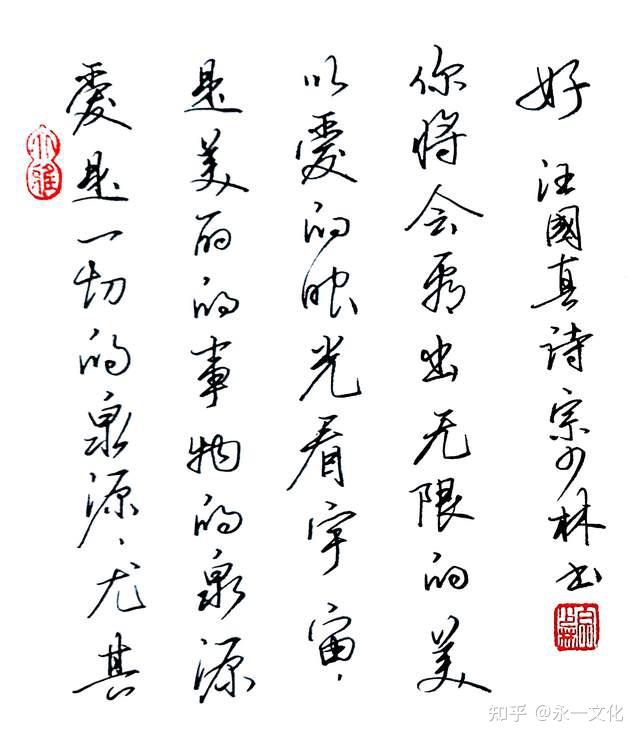 愛是一切的泉源、尤其
是美丽的事物的泉源
以愛的眼光看宇宙,
你将会看出无限的美
好 汪國真詩 宗少林书
知乎 @永一文化